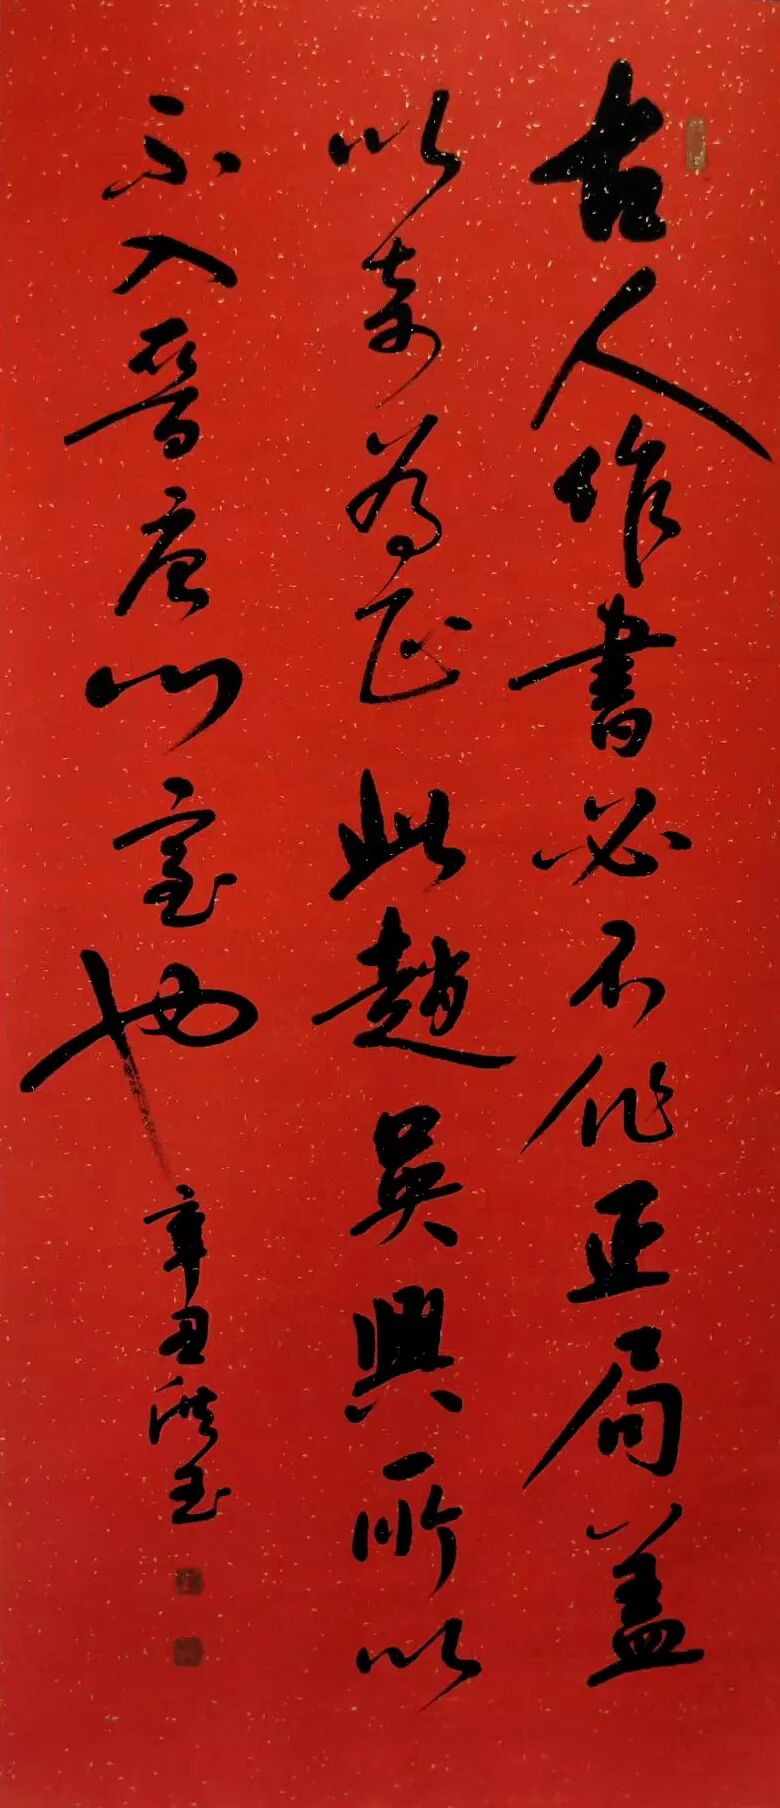 古人作書必不作正局盖
以奇為正此趙吳興所以
不入晉唐門室也 辛丑 玉